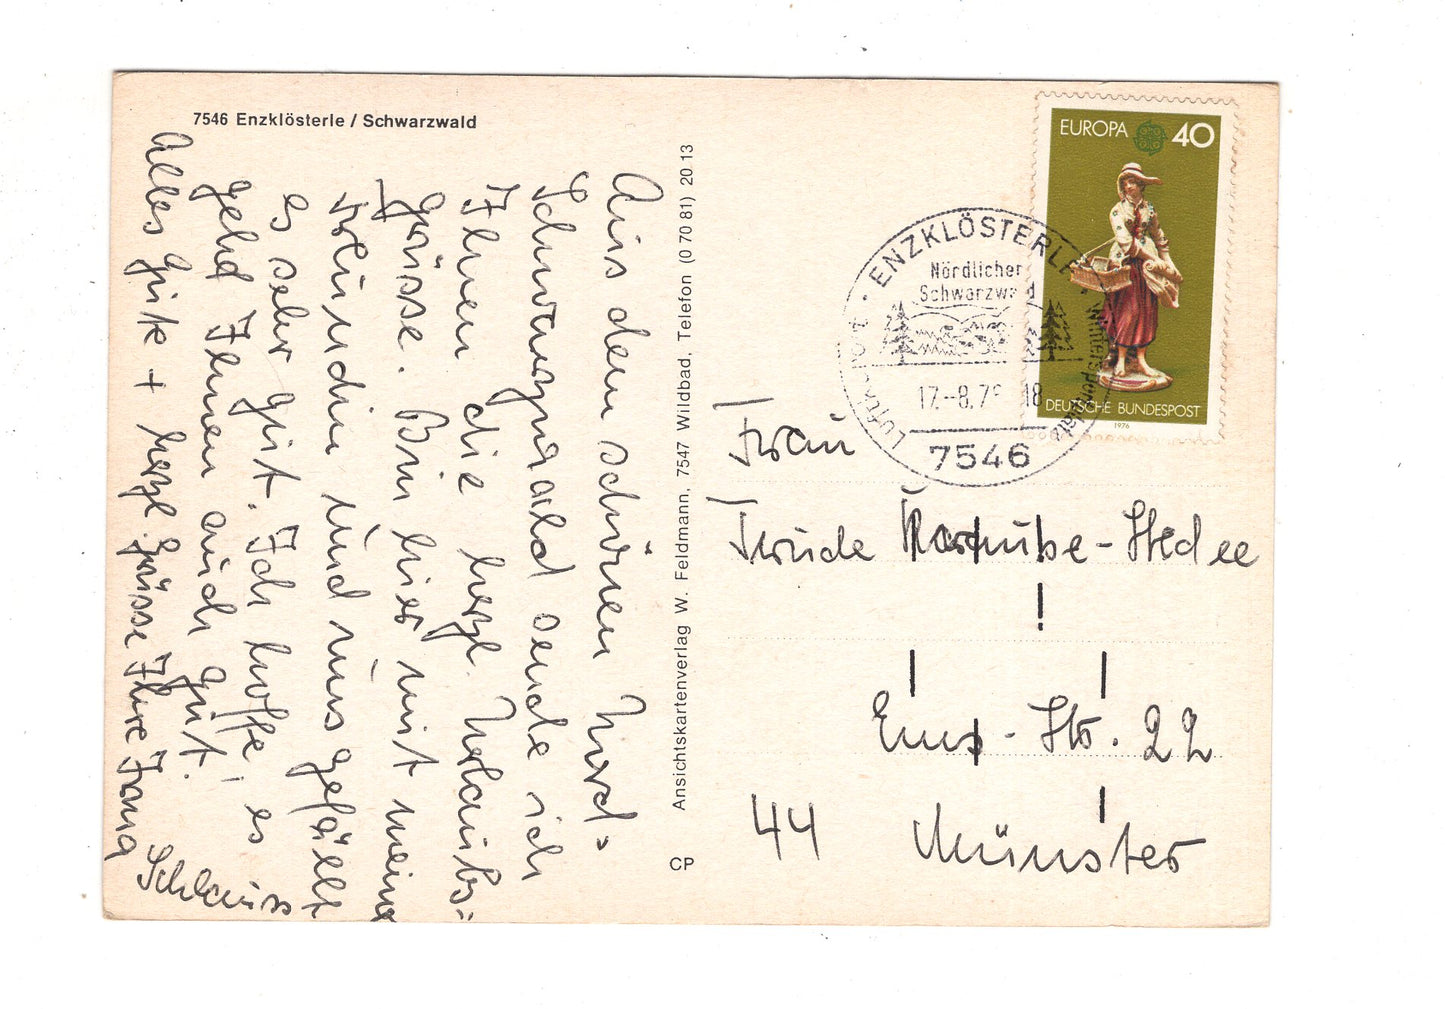 7546 Enzklösterle / Schwarzwald
Aus dem schönen Nord-
Schwarzwald sende ich
Ihnen die herzl. Urlaubs-
grüsse. Bin hier mit meiner
Freundin und uns gefällt
es sehr gut. Ich hoffe, es
geht Ihnen auch gut.
Alles Gute + herzl. Grüsse Ihre
Schlauss
Ansichtskartenverlag W. Feldmann, 7547 Wildbad, Telefon (0 70 81) 20 13
CP
EUROPA 40
DEUTSCHE BUNDESPOST
1976
ENZKLÖSTERLE · Wintersportplatz
Luftkurort
Nördlicher
Schwarzwald
17.-8.76 18
7546
Frau
Trude
Ems-Str. 22
44 Münster